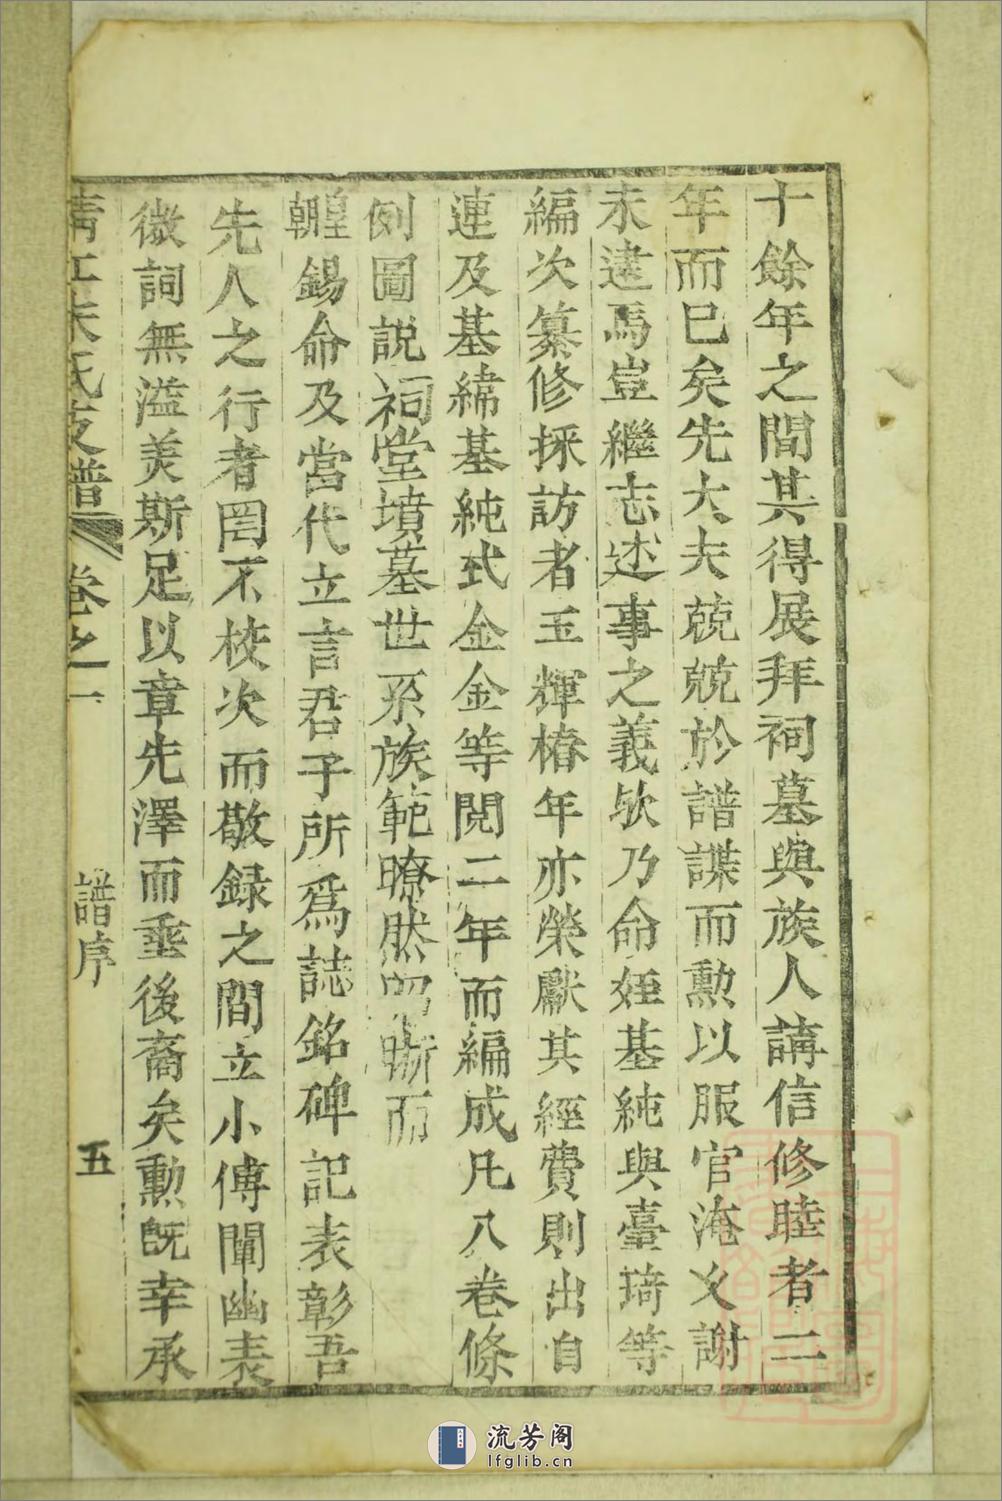 十餘年之間其得展拜祠墓與族人講信修睦者二
年而已矣先大夫兢兢於譜諜而勲以服官淹久謝
未逮焉豈繼志述事之義欤乃命姪基純與臺琦等
編次纂修採訪者玉輝椿年亦榮獻其經費則出自
連及基緯基純式金金等閱二年而編成凡八卷條
例圖說祠堂墳墓世系族範瞭然昭晰而
皇朝錫命及當代立言君子所爲誌銘碑記表彰吾
先人之行者罔不校次而敬録之間立小傳闡幽表
微詞無溢美斯足以章先澤而垂後裔矣勲旣幸承
清江朱氏支譜 卷之一 譜序 五
流芳阁
lfglib.cn